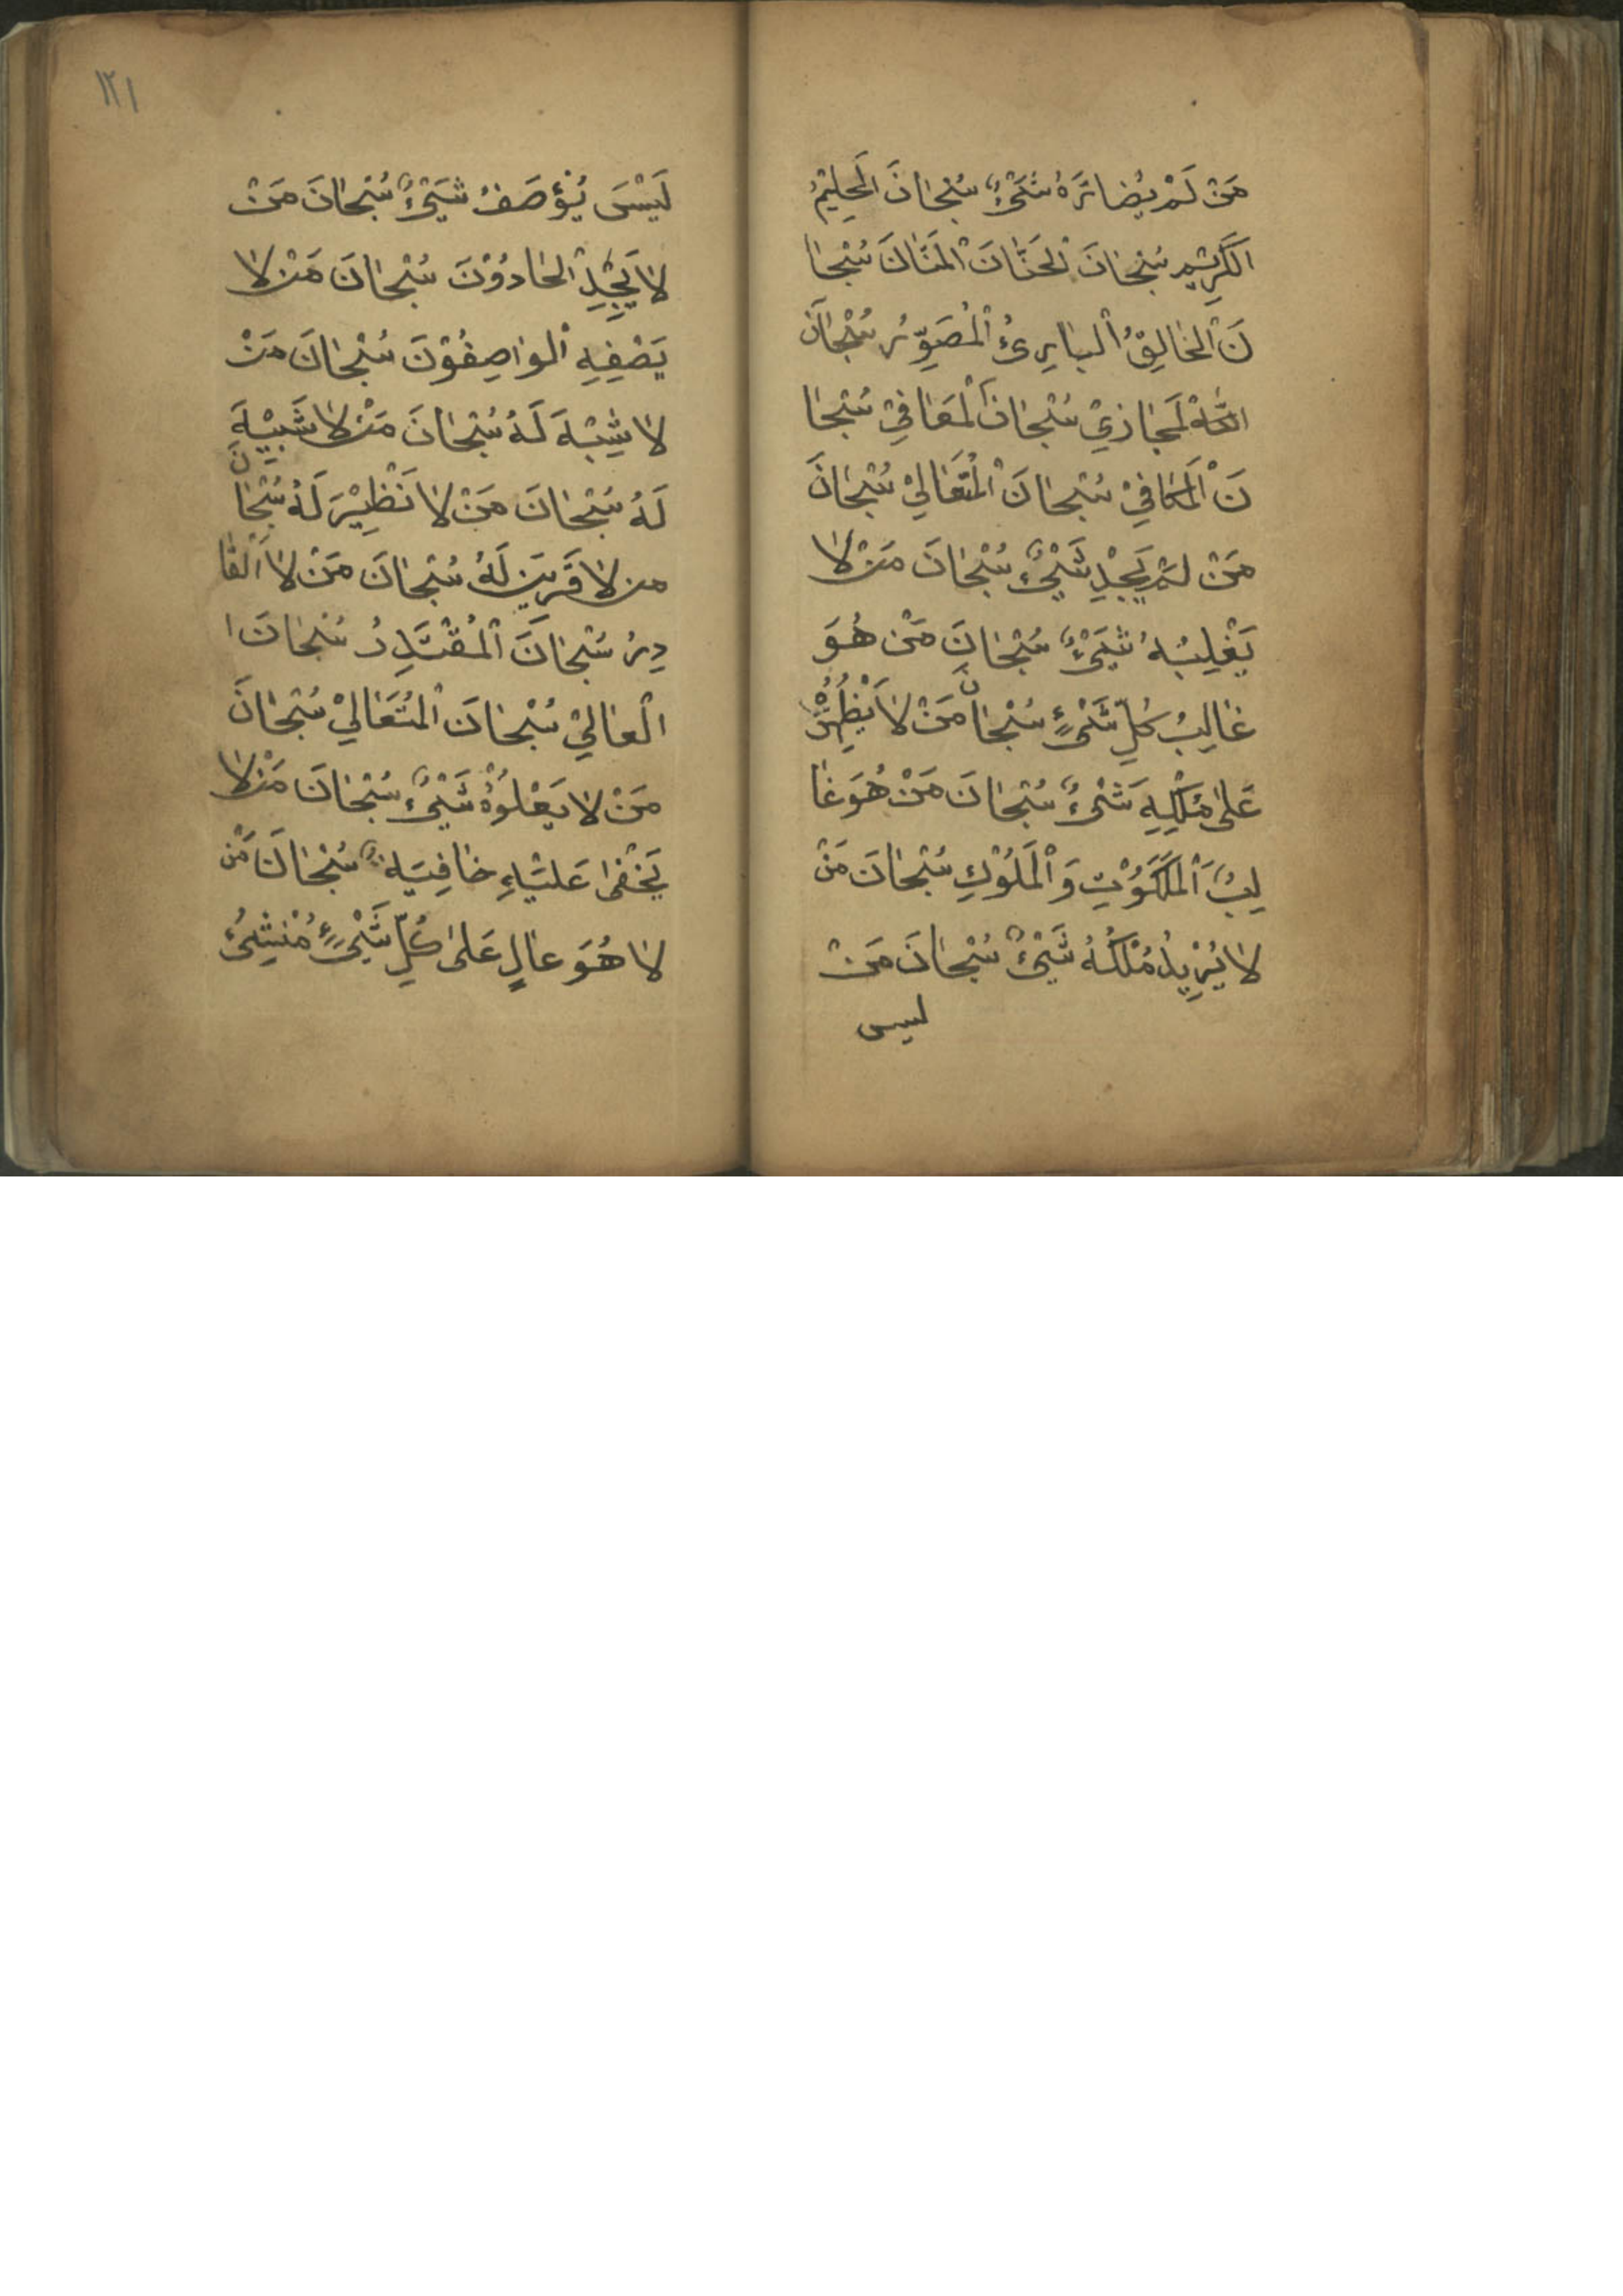 مَنْ لَمْ يُضَارَهُ شَيْءٌ سُبْحَانَ الْحَلِيْمُ
الْكَرِيْمِ سُبْحَانَ الْحَنَّانَ الْمَنَّانَ سُبْحَا
نَ الْخَالِقُ الْبَارِئُ الْمُصَوِّرُ سُبْحَانَ
اللّٰهْ لْمَجَازِيْ سُبْحَانَ الْمَعَافِيْ سُبْحَا
نَ الْمَكَافِيْ سُبْحَانَ الْمُتَعَالِيْ سُبْحَانَ
مَنْ لَمْ يَجِدِ شَيْءٌ سُبْحَانَ مَنْ لَا
يَغْلِبُهُ شَيْءٌ سُبْحَانَ مَنْ هُوَ
غَالِبُ كُلِّ شَيْءٍ سُبْحَانَ مَنْ لَا
عَلَى مُلْكِهِ شَيْءٌ سُبْحَانَ مَنْ هُوَ غَا
لِبُ الْمَلَكَوُتِ وَالْمَلُوْكِ سُبْحَانَ مَنْ
لَا يُزِيدُ مُلْكُهُ شَيْءٌ سُبْحَانَ مَنْ
ليس
١٢١
لَيْسَ يُؤصَفُ شَيْءٌ سُبْحَانَ مَنْ
لَا يَجِدِ الْحَادُوْنَ سُبْحَانَ مَنْ لَا
يَصْفِهِ الْوَاصِفُوْنَ سُبْحَانَ مَنْ
لَا شِبْهَ لَهُ سُبْحَانَ مَنْ لَا شَبِيْهَ
لَهُ سُبْحَانَ مَنْ لَا نَظِيْرَ لَهُ سُبْحَانَ
من لَا قَرِينَ لَهُ سُبْحَانَ مَنْ لَا الْقَا
دِرُ سُبْحَانَ الْمُقْتَدِرُ سُبْحَانَ ا
الْعَالِيْ سُبْحَانَ الْمُتَعَالِيْ سُبْحَانَ
مَنْ لَا يَعْلُوْهُ شَيْءٌ سُبْحَانَ مَنْ لَا
يَخْفَى عَلَيْهِ خَافِيَهٌ سُبْحَانَ مَنْ
لَا هُوَ عَالٍ عَلَى كُلِّ شَيْءٍ مُنْشِئُ